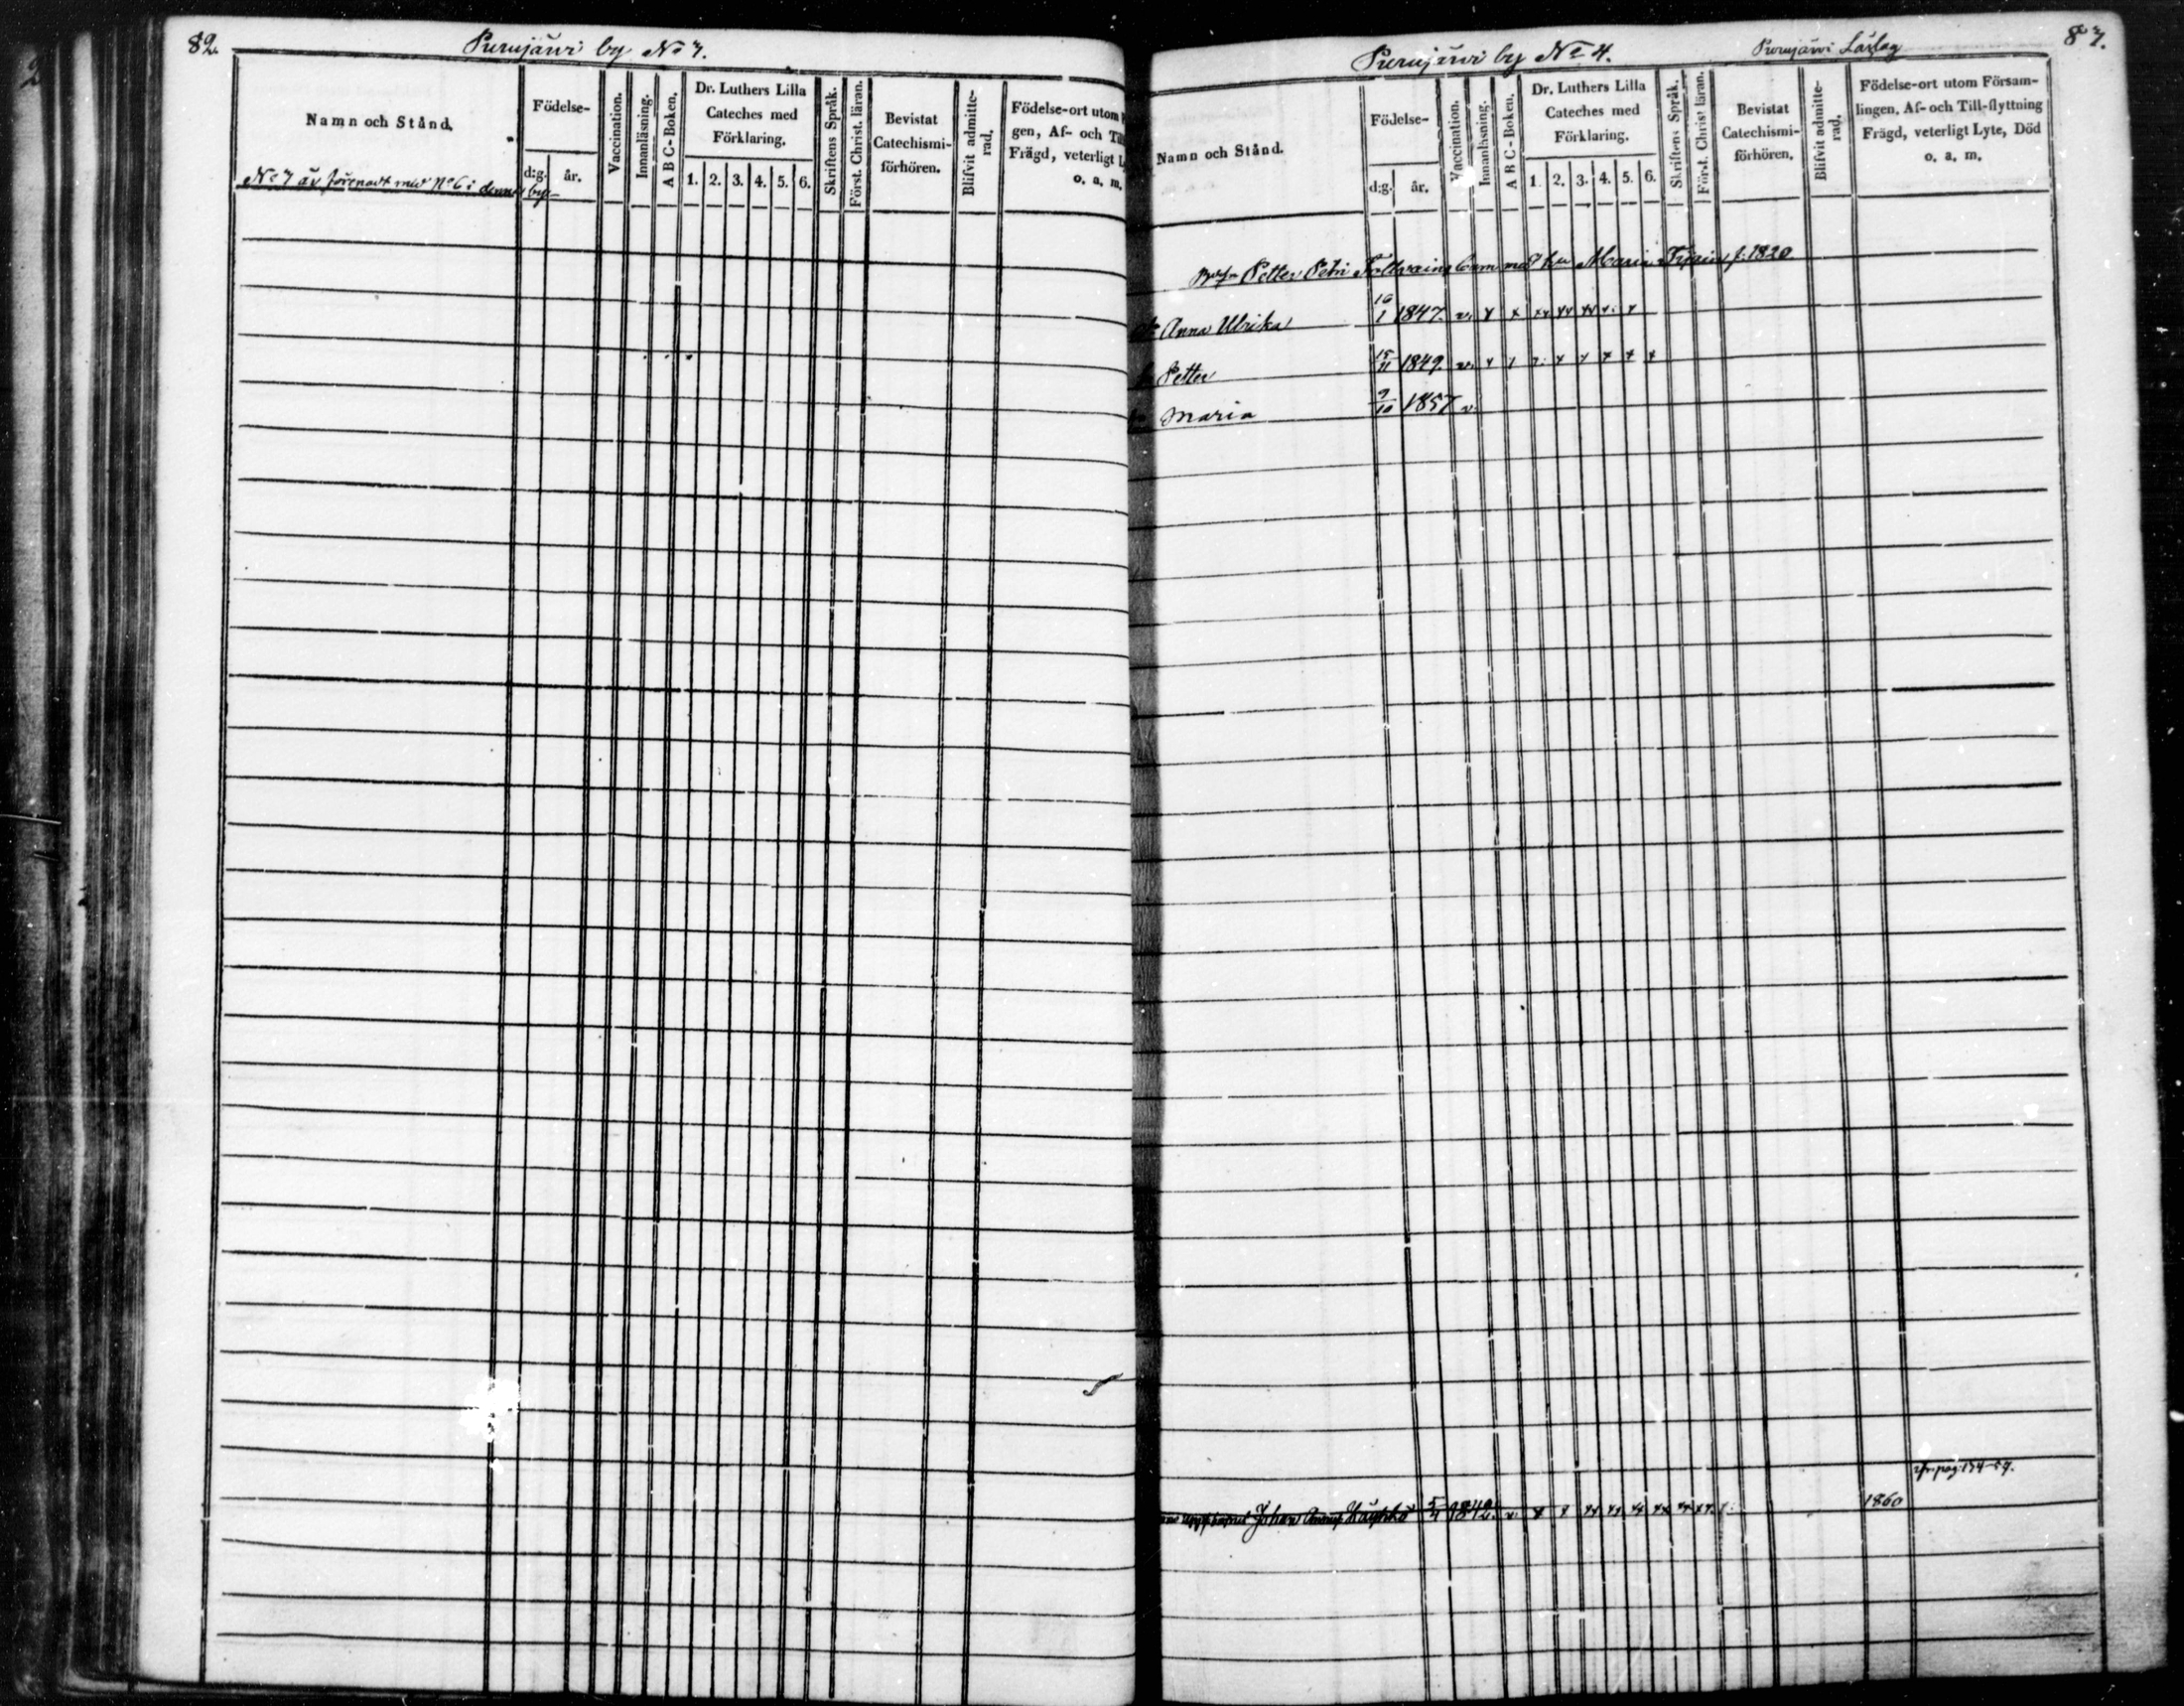 82.
Purujärvi by No 7.
Namn och Stånd.
Födelse-
d:g.
år.
Vaccination.
Innanläsning.
A B C-Boken.
Dr. Luthers Lilla
Cateches med
Förklaring.
1. 2. 3. 4. 5. 6.
Skriftens Språk.
Först. Christ. läran.
Bevistat
Catechismi-
förhören.
Blifvit admitte-
rad.
Födelse-ort utom
gen, Af- och
Frägd, veterligt
o. a. m.
No 7 är förenadt med No 6 i denna by
Purujärvi by No 4.
Purujärvi Läslag
87.
Namn och Stånd.
Födelse-
d:g.
år.
Vaccination.
Innanläsning.
A B C-Boken.
Dr. Luthers Lilla
Cateches med
Förklaring.
1. 2. 3. 4. 5. 6.
Skriftens Språk.
Först. Christ. läran.
Bevistat
Catechismi-
förhören.
Blifvit admitte-
rad.
Födelse-ort utom Försam-
lingen, Af- och Till-flyttning
Frägd, veterligt Lyte, Död
o. a. m.
Petter Petri barn med hu Maria f. 1820
Anna Ulrika 16/1 1847. v. x x xx xx xx x x
Petter 15/11 1849. v. x x x x x x x x
Maria 9/10 1857 v.
pag. 174-59.
Johan Häyhkö 5/4 1842. v. x x xx xx xx xx xx xx 1860